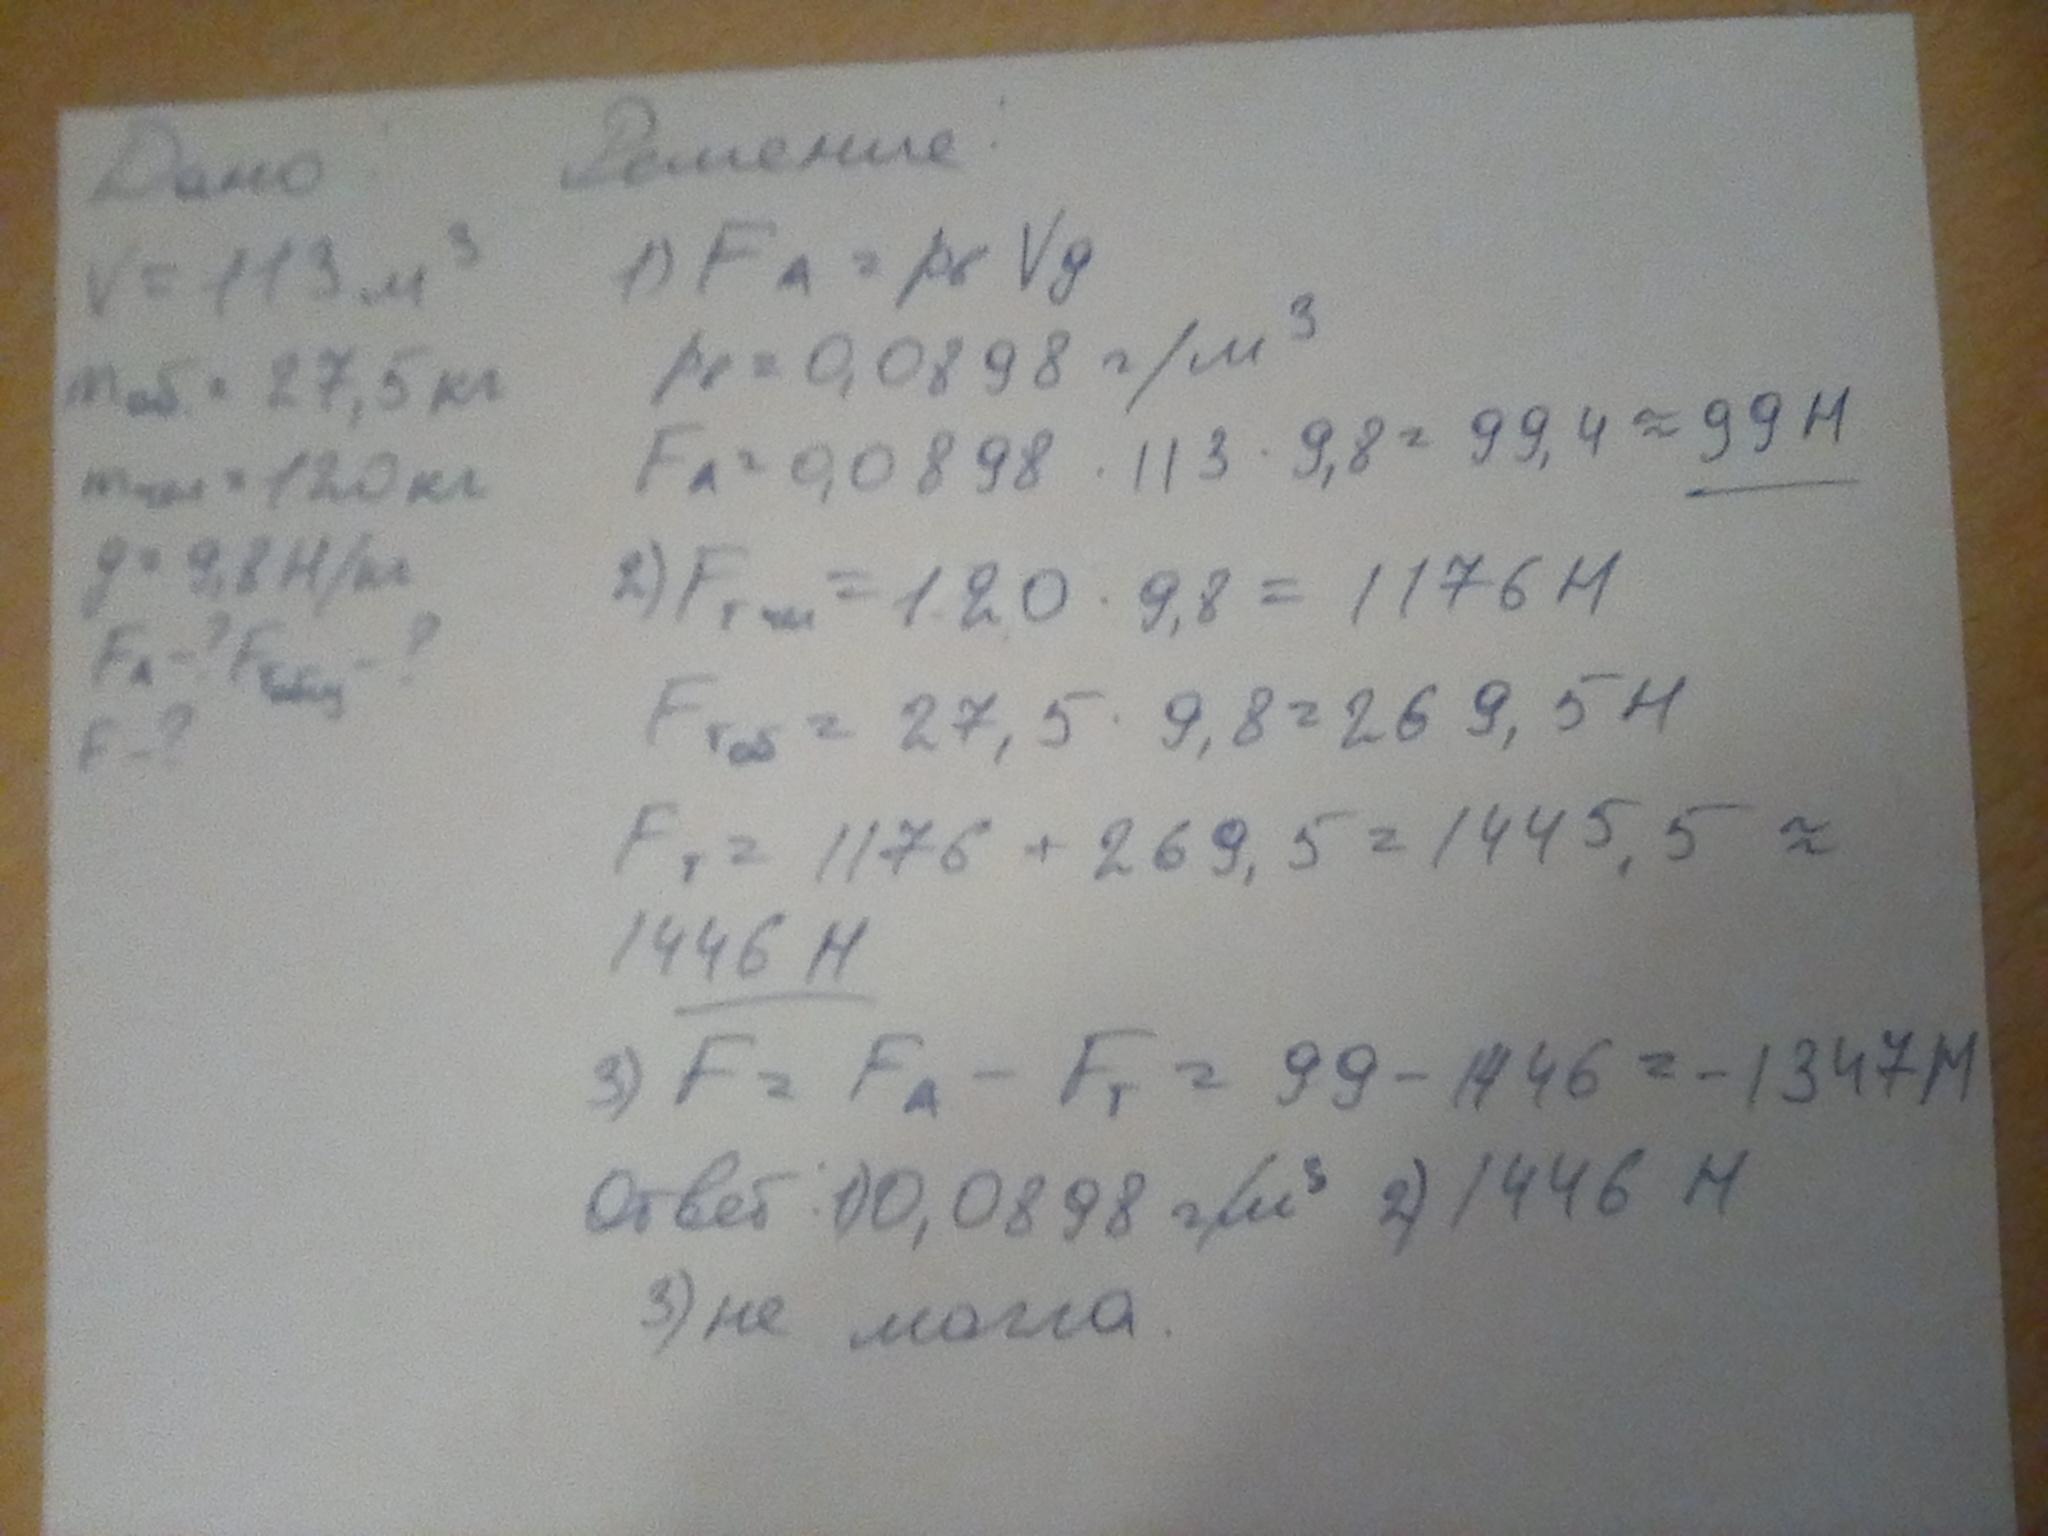 Дано:
V = 113 м³
mоб. = 27,5 кг
mчел = 120 кг
g = 9,8 Н/кг
FА - ? Fтобщ - ?
F - ?
Решение:
1) FА = ρг Vg
ρг = 0,0898 г/м³
FА = 0,0898 · 113 · 9,8 = 99,4 ≈ 99 Н
2) Fт чел = 120 · 9,8 = 1176 Н
Fт об = 27,5 · 9,8 = 269,5 Н
Fт = 1176 + 269,5 = 1445,5 ≈
1446 Н
3) F = FА - Fт = 99 - 1446 = -1347 Н
Ответ: 1) 0,0898 г/м³ 2) 1446 Н
3) не могла.